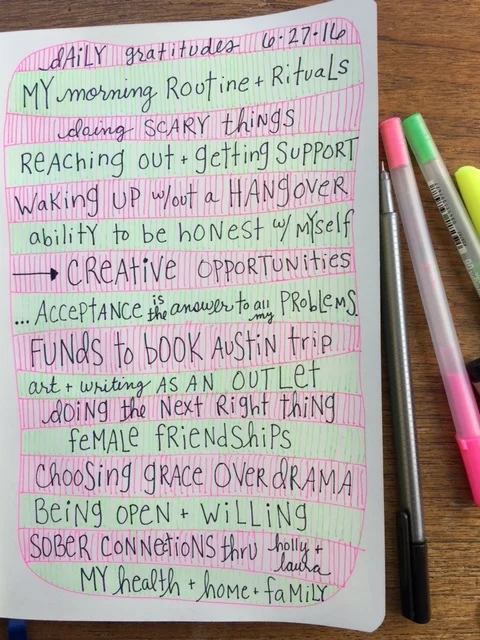 dAiLY gratitudes 6·27·16
MY morning Routine + RitUaLs
doing SCARY things
REACHing out + getting SUPPORT
Waking UP w/out a HANGOVER
abiLitY to be hONEST w/ MYself
→ CREATIVE OPPORTUNITIES
... ACCEPTANCE is the answer to all my PRObLeMS
FUNds to bOOK AUStin trip
art + writing AS AN OUTLET
dOING the Next Right thiNg
feMALE fRiENdShiPS
ChOOSiNg gRACE OVER dRAMA
BEiNg OPEN + WiLLiNg
SOBER CONNEtiONS thru holly + laura
MY health + home + faMiLY